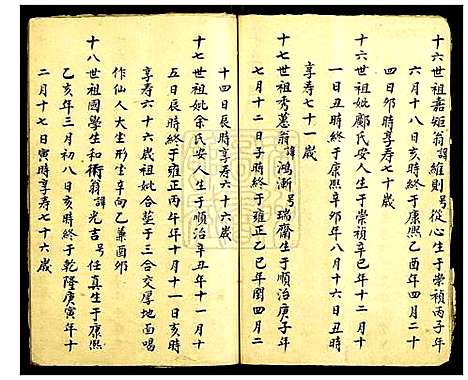 十六世祖嘉矩翁諱維則号從心生于崇禎丙子年
六月十八日亥時終于康熙乙酉年四月二十
四日卯時享寿七十歲
十六世祖妣鄺氏安人生于崇禎辛巳年十二月十
一日丑時終于康熙辛卯年八月十六日丑時
享寿七十一歲
十七世祖秀蔥翁諱鴻漸号瑞齋生于順治庚子年
七月十二日子時終于雍正乙巳年閏四月二
十四日辰時享寿六十六歲
十七世祖妣余氏安人生于順治辛丑年十一月十
五日辰時終于雍正丙午年十月十一日亥時
享寿六十六歲祖妣合葬于三合交羅地面唱
作仙人大坐形坐辛向乙兼酉卯
十八世祖國學生和衛翁諱光吉号任真生于康熙
乙亥年三月初八日亥時終于乾隆庚寅年十
二月十七日寅時享寿七十六歲